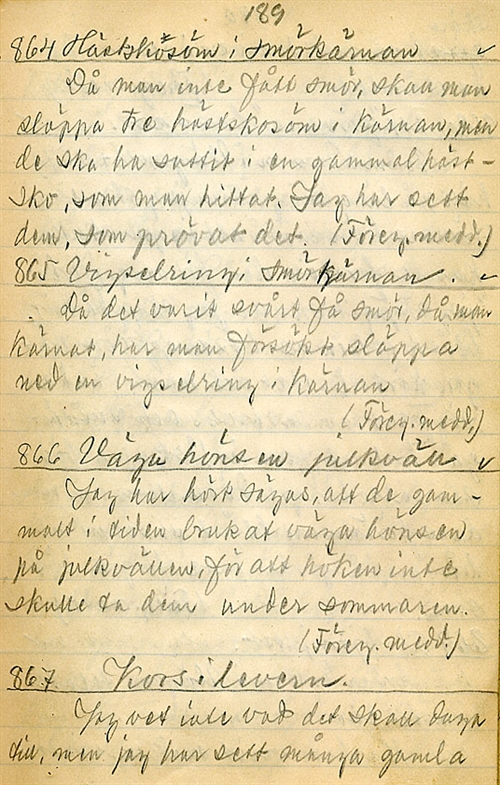 189
864 Hästskosöm i smörkärnan
Då man inte fått smör, skall man
släppa tre hästskosöm i kärnan, men
de ska ha suttit i en gammal häst-
sko, som man hittat. Jag har sett
dem, som prövat det. (Föreg. medd.)
865 Vigselring i smörkärnan.
Då det varit svårt få smör, då man
kärnat, har man försökt släppa
ned en vigselring i kärnan
(Föreg. medd.)
866 Väga hönsen julkväll
Jag har hört sägas, att de gam-
malt i tiden brukat väga hönsen
på julkvällen, för att höken inte
skulle ta dem under sommaren.
(Föreg. medd.)
867 Kors i levern.
Jag vet inte vad det skall duga
till, men jag har sett många gamla